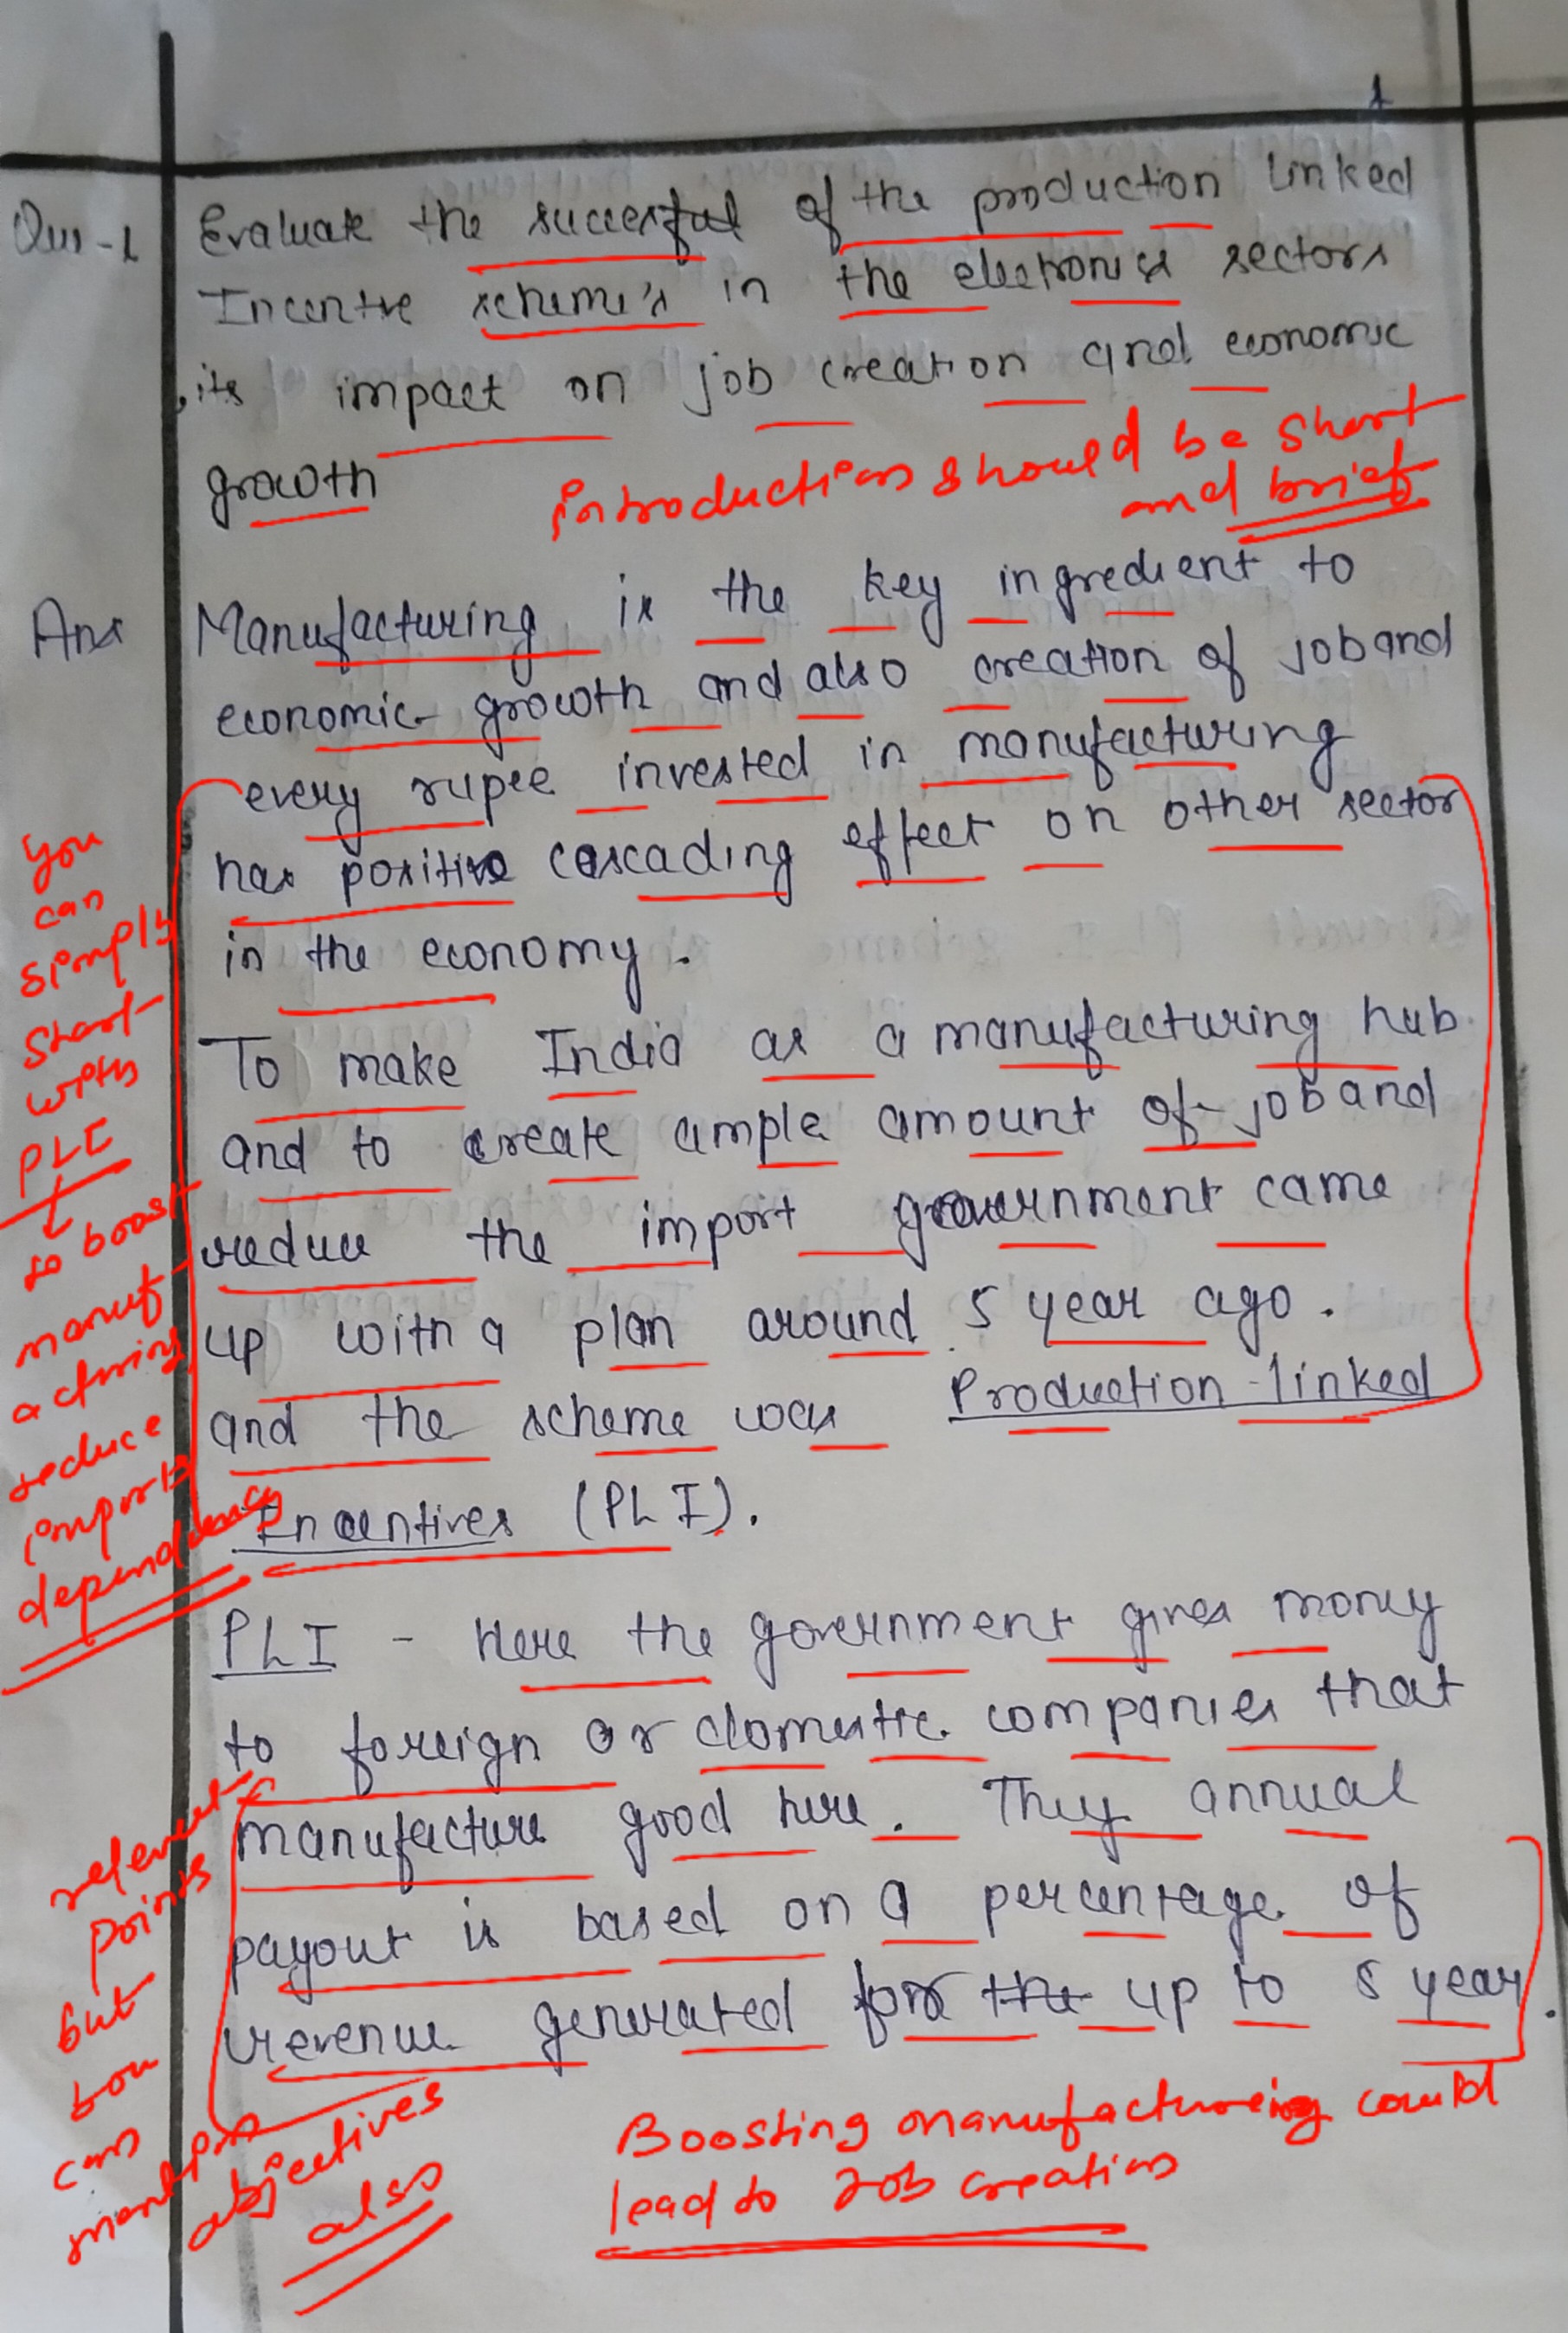 1
Ques-1 Evaluate the successful of the production linked
Incentive scheme's in the electronics sectors
its impact on job creation and economic
growth
introduction should be short
and brief
Ans Manufacturing is the key ingredient to
economic growth and also creation of job and
every rupee invested in manufacturing
has positive cascading effect on other sector
in the economy.
To make India as a manufacturing hub
and to create ample amount of job and
reduce the import government came
up with a plan around 5 year ago.
and the scheme was Production-linked
Incentives (PLI).
you
can
simply
start
with
PLI
to boost
manuf
acturing
reduce
imports
dependency
PLI - Here the government gives money
to foreign or domestic companies that
manufacture good here. They annual
payout is based on a percentage of
revenue generated for the up to 5 year.
relevant
points
but
you
can
mention
objectives
also
Boosting manufactureing could
lead to Job creation